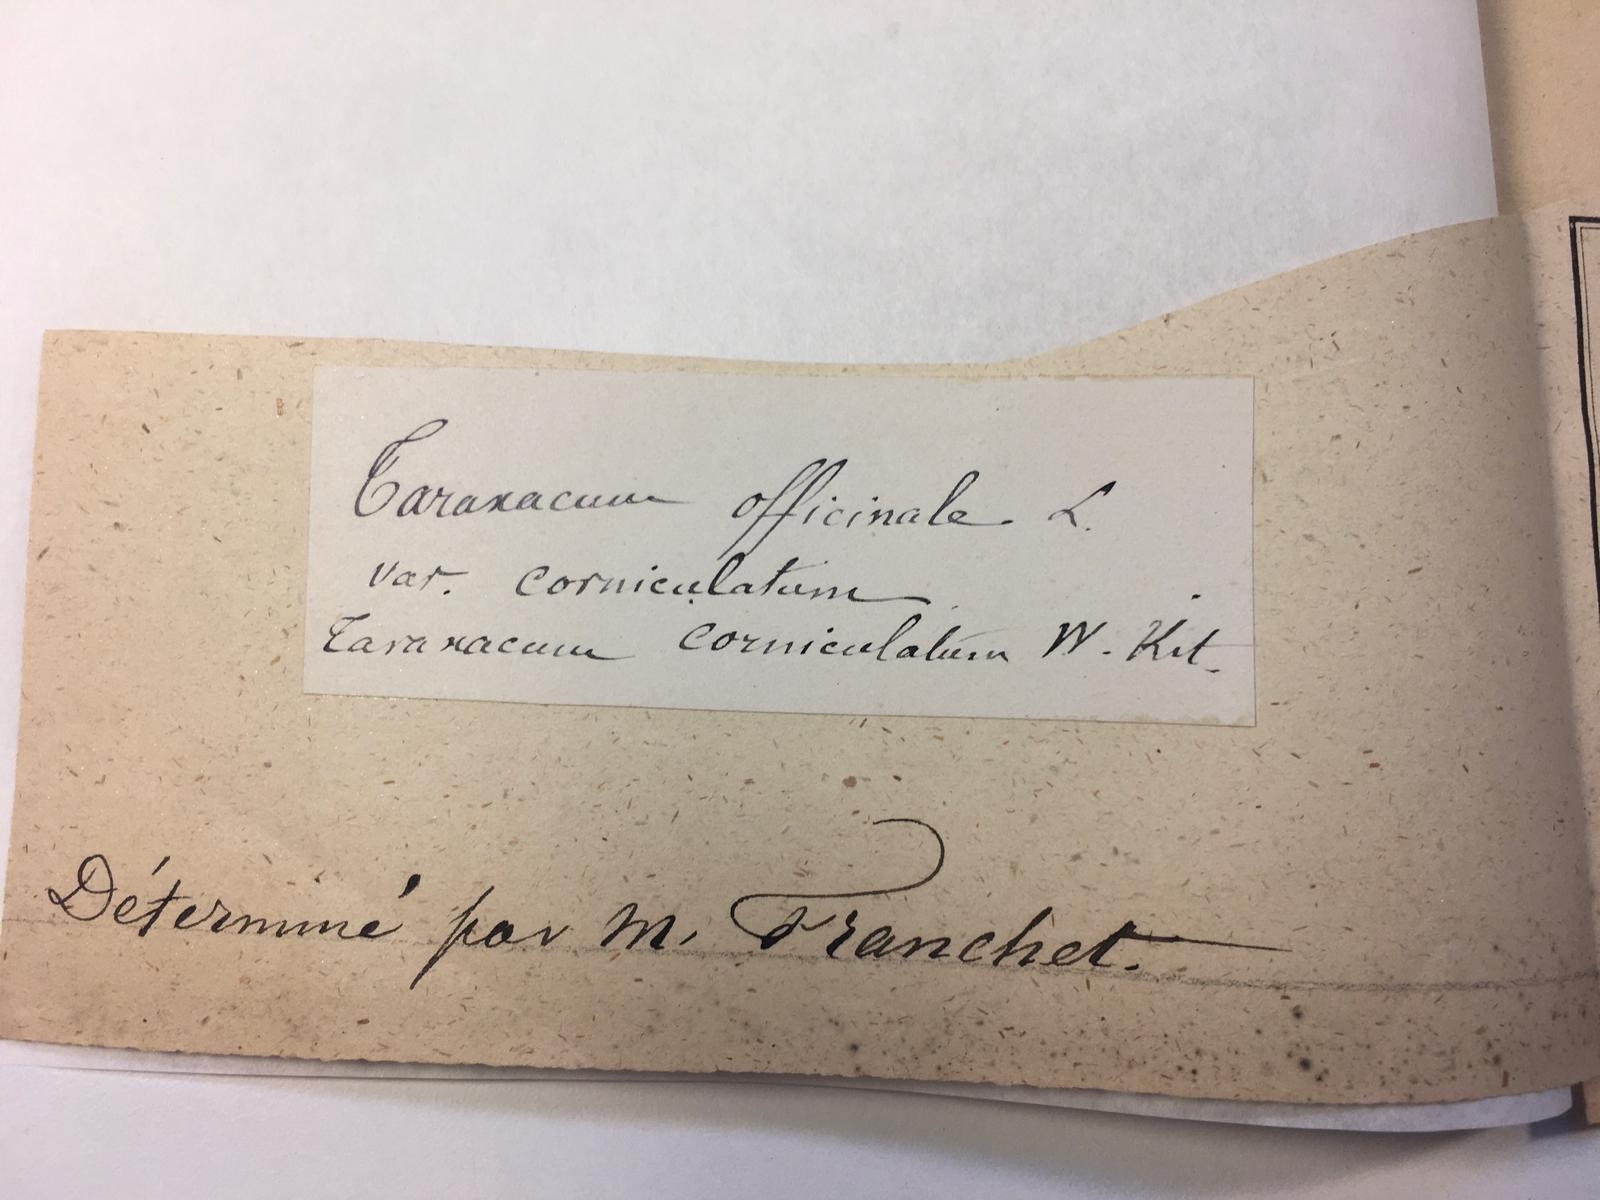 Taraxacum officinale L.
var. corniculatum
Taraxacum corniculatum W. Kit.
Déterminé par M. Franchet.